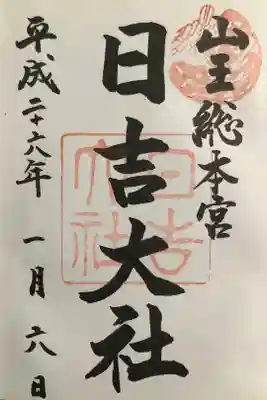 山王総本宮
日吉大社
平成二十六年一月六日
日吉大社